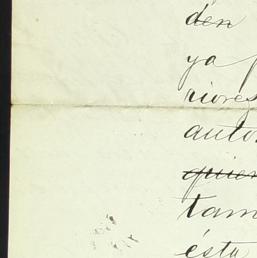 den
ya
riores
auto
quien
tam
ésta